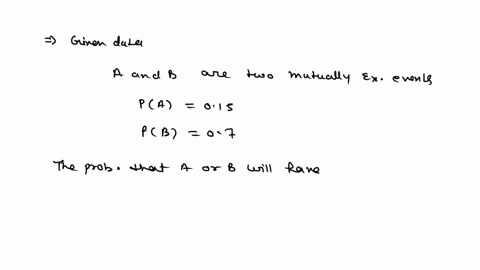 ⇒ Given data
A and B are two mutually Ex. events
P(A) = 0.15
P(B) = 0.7
The prob. that A or B will have